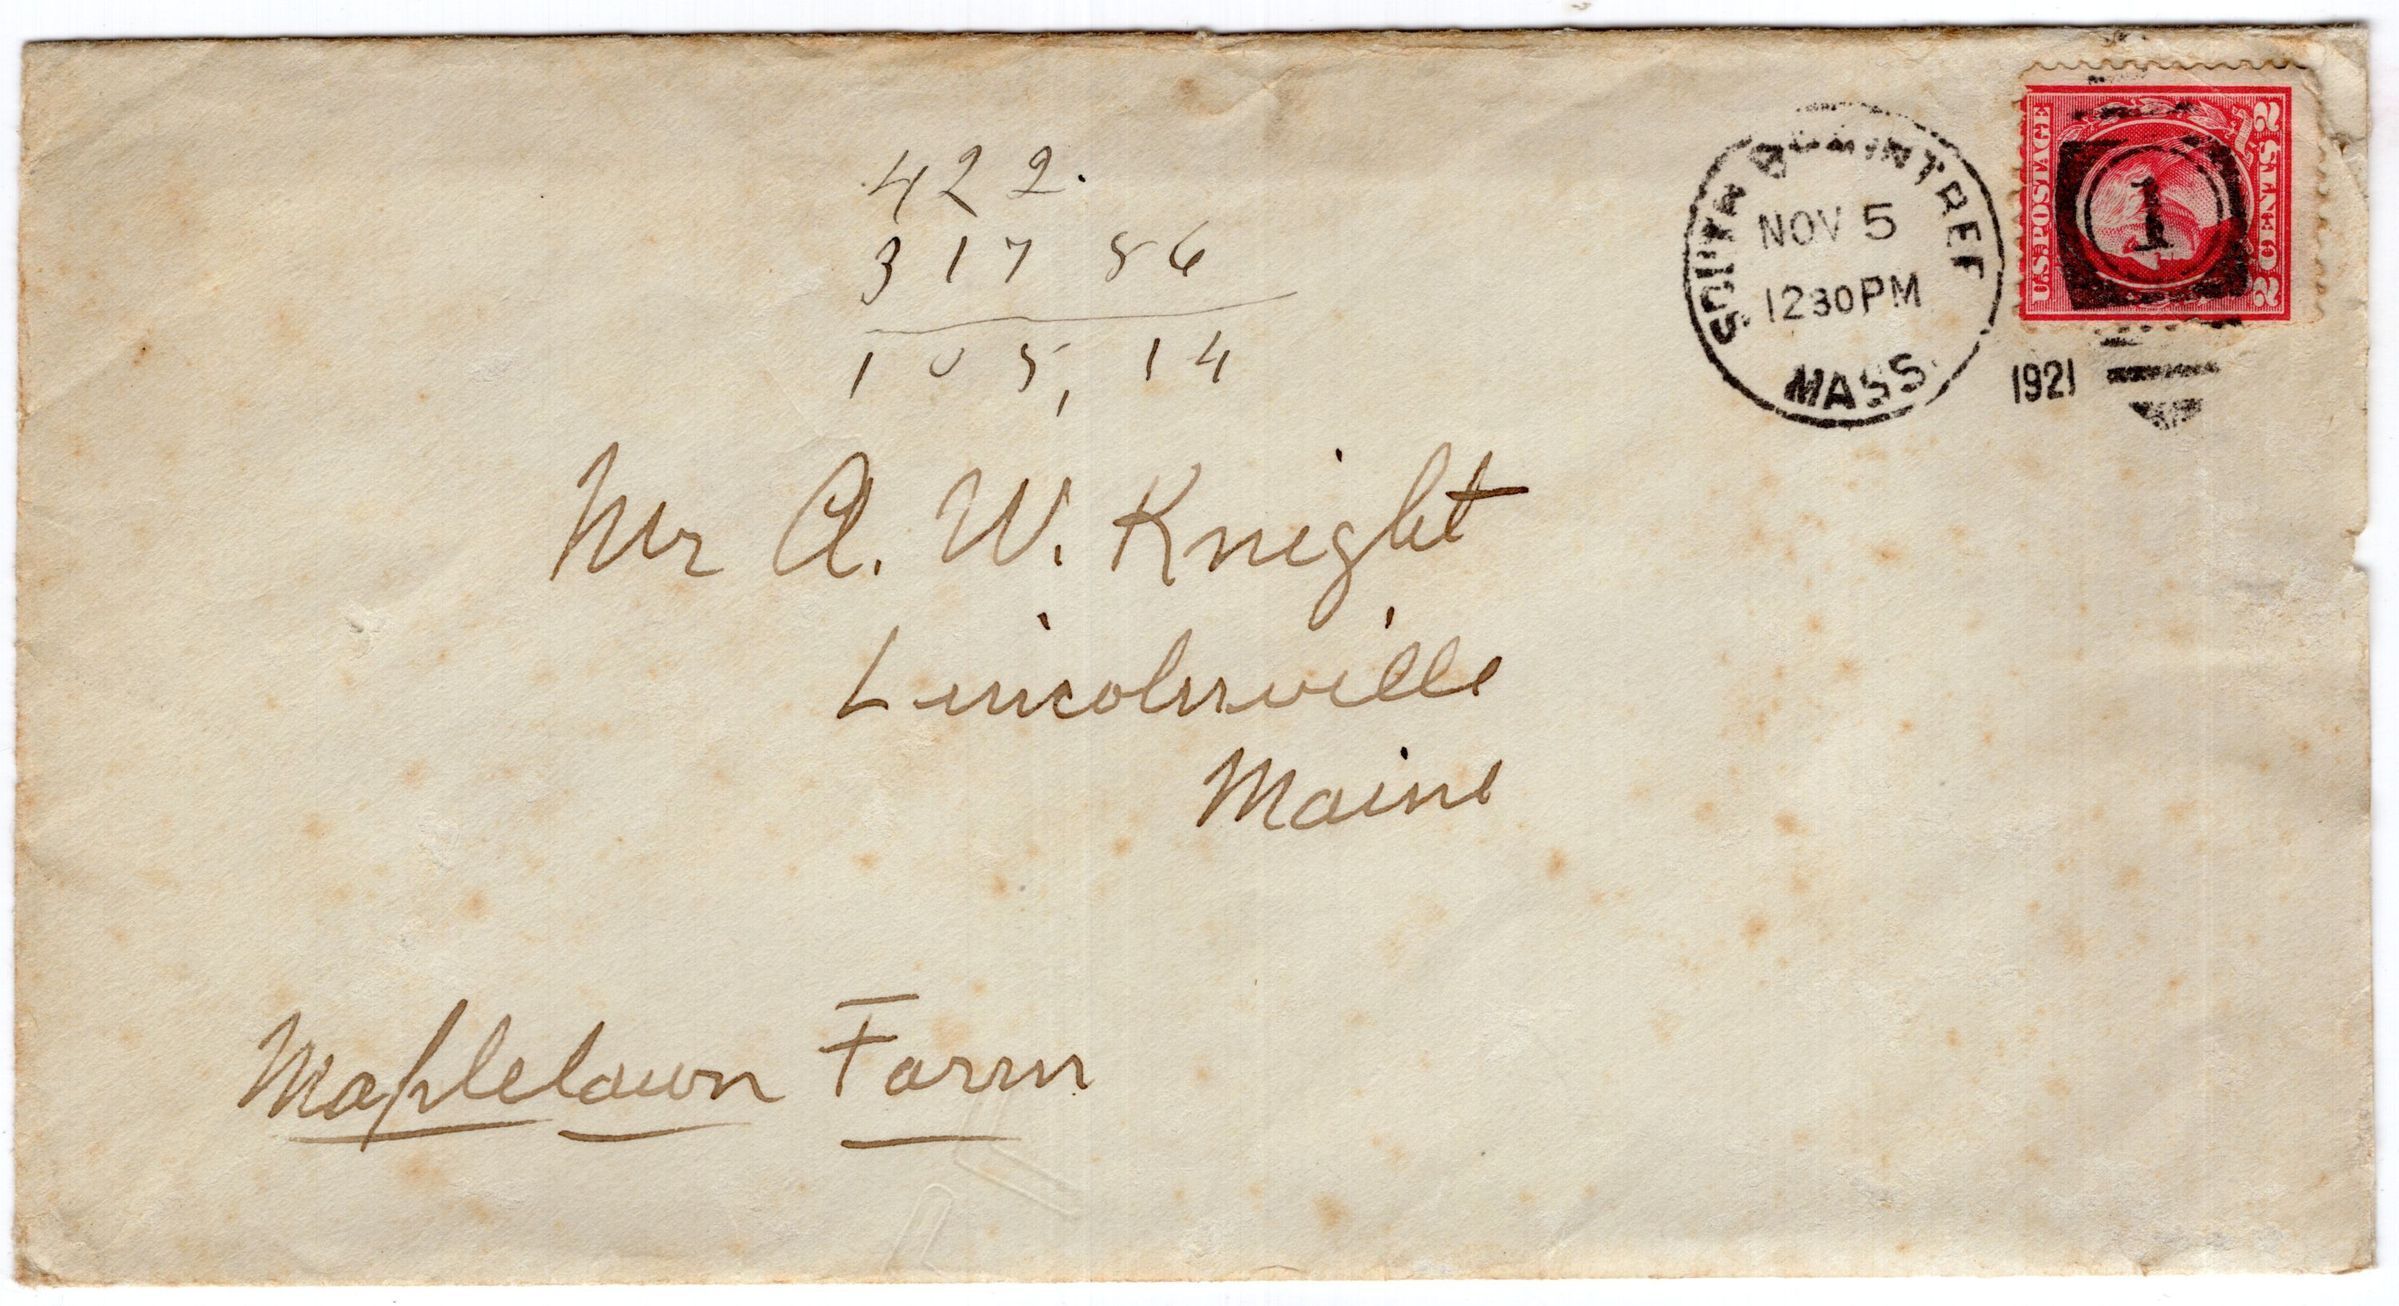 422.
317 86
105,14
SOUTH BRAINTREE
NOV 5
1230PM
MASS.
1921
U.S. POSTAGE
2 CENTS 2
1
Mr A. W. Knight
Lincolnville
Maine
Maplelawn Farm